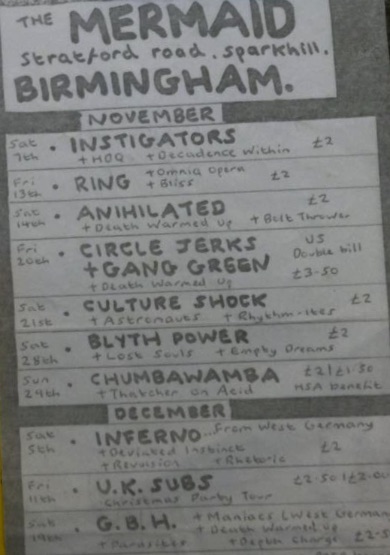 THE MERMAID
Stratford road. Sparkhill.
BIRMINGHAM.
NOVEMBER
Sat 7th • INSTIGATORS £2
+ HDQ + Decadence Within
Fri 13th • RING + Omnia Opera £2
+ Bliss
Sat 14th • ANIHILATED £2
+ Death Warmed Up + Bolt Thrower
Fri 20th • CIRCLE JERKS US
+ GANG GREEN Double bill
+ Death Warmed Up £3-50
Sat 21st • CULTURE SHOCK £2
+ Astronauts + Rhythm-ites
Sat 28th • BLYTH POWER £2
+ Lost Souls + Empty Dreams
Sun 29th • CHUMBAWAMBA £2/£1-50
+ Thatcher On Acid HSA benefit
DECEMBER
Sat 5th • INFERNO...from West Germany
+ Deviated Instinct £2
+ Revulsion + Rhetoric
Fri 11th • U.K. SUBS £2-50/£2-00
Christmas Party Tour
Sat 19th • G.B.H. + Maniacs (West German
+ Death Warmed Up
+ Parasites + Depth Charge